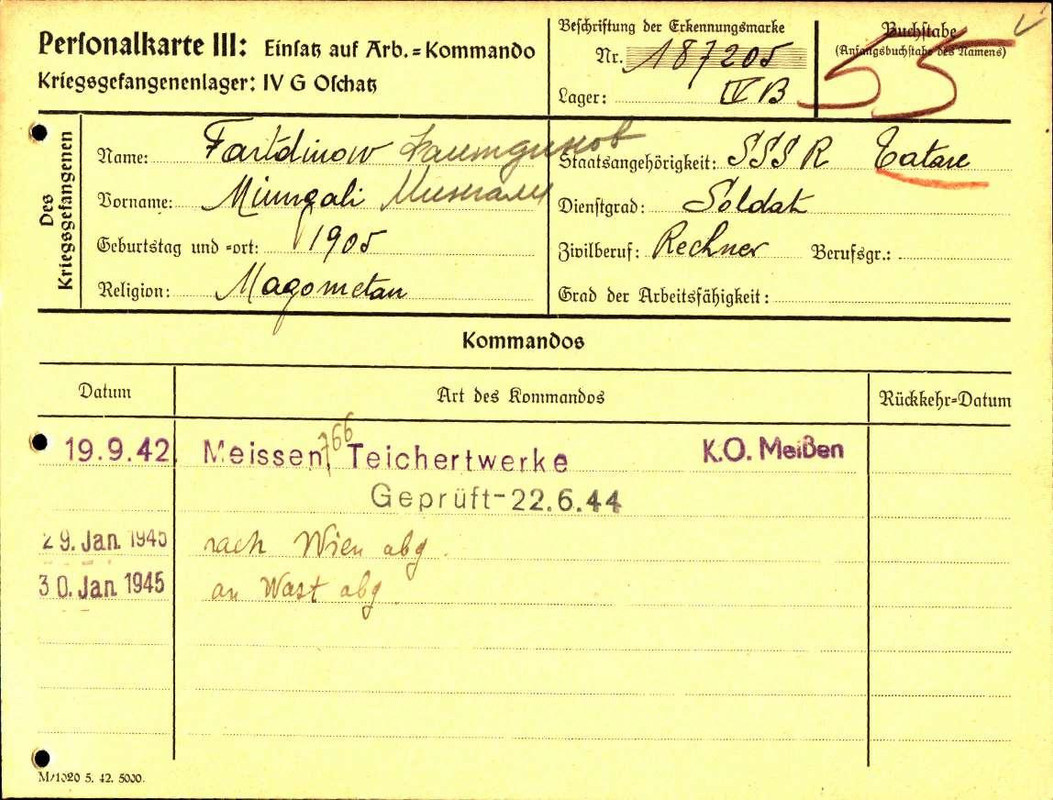 Personalkarte III: Einsatz auf Arb.=Kommando
Kriegsgefangenenlager: IV G Oschatz
Beschriftung der Erkennungsmarke
Nr. 187205
Lager: IV B
Buchstabe
(Anfangsbuchstabe des Namens)
55
Des Kriegsgefangenen
Name: Fartdinow
Vorname: Miungali
Geburtstag und =ort: 1905
Religion: Magometan
Staatsangehörigkeit: SSSR Tatare
Dienstgrad: Soldat
Zivilberuf: Rechner Berufsgr.:
Grad der Arbeitsfähigkeit:
Kommandos
Datum Art des Kommandos Rückkehr=Datum
19.9.42 Meissen, 766 Teichertwerke K.O. Meißen
Geprüft-22.6.44
29. Jan. 1945 nach Wien abg.
30. Jan. 1945 an Wast abg.
M/1020 5. 42. 5000.